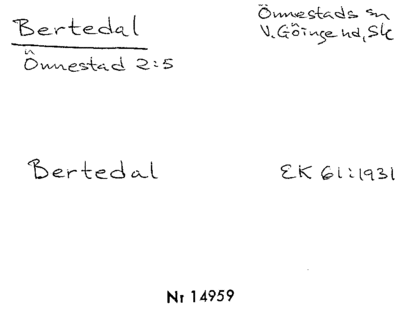 Bertedal
Önnestads sn
V. Göinge hd, Sk
Önnestad 2:5
Bertedal
EK 61:1931
Nr 14959